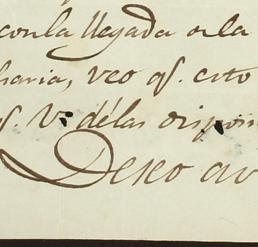 con la llegada a la
haria, veo qᵉ. esto
qᵉ. V. dé las dispon
Deseo av